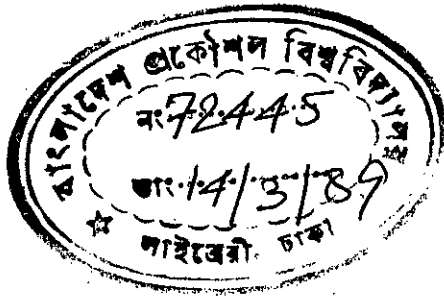 বাংলাদেশ প্রকৌশল বিশ্ববিদ্যালয়
নং 72445
তাং 14/3/89
লাইব্রেরী ঢাকা